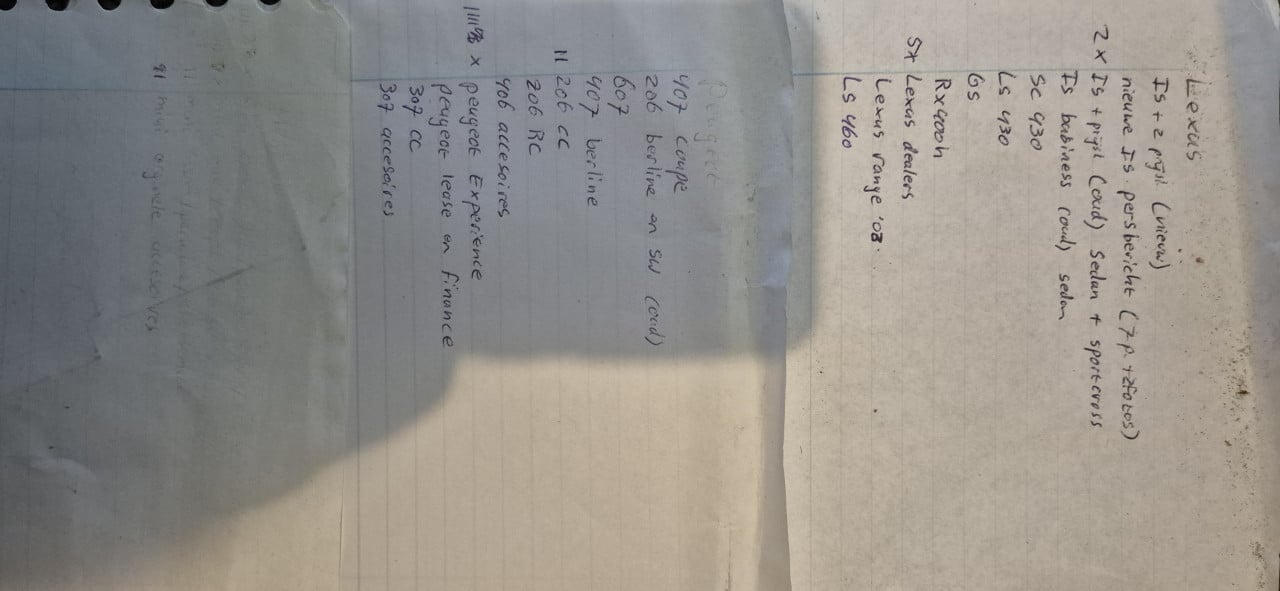 Lexus
IS + 2 prijsl. (nieuw)
nieuwe IS persbericht (7p. + 2fotos)
2x IS + prijsl (oud) Sedan + sportcross
IS business (oud) sedan
SC 430
LS 430
GS
Rx400h
5x Lexus dealers
Lexus range '03.
LS 460
Peugeot
407 coupé
206 berline en SW (oud)
607
407 berline
11 206 cc
206 RC
406 accesoires
x peugeot Experience
peugeot lease en finance
307 cc
307 accesoires
mini